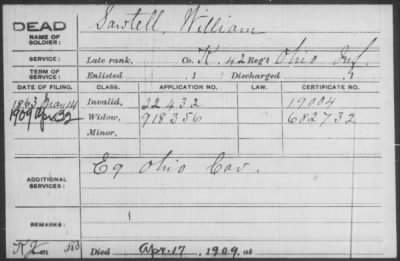 DEAD
NAME OF SOLDIER: Sawtell, William
SERVICE: Late rank, Co. K. 42 Reg't Ohio Inf.
TERM OF SERVICE: Enlisted , 1 Discharged , 1
DATE OF FILING. CLASS. APPLICATION NO. LAW. CERTIFICATE NO.
1863 May 14 Invalid, 22432 17004
1909 Apr 22 Widow, 918356 682732
Minor,
ADDITIONAL SERVICES: E 9 Ohio Cav.
REMARKS:
Died Apr. 17, 1909, at